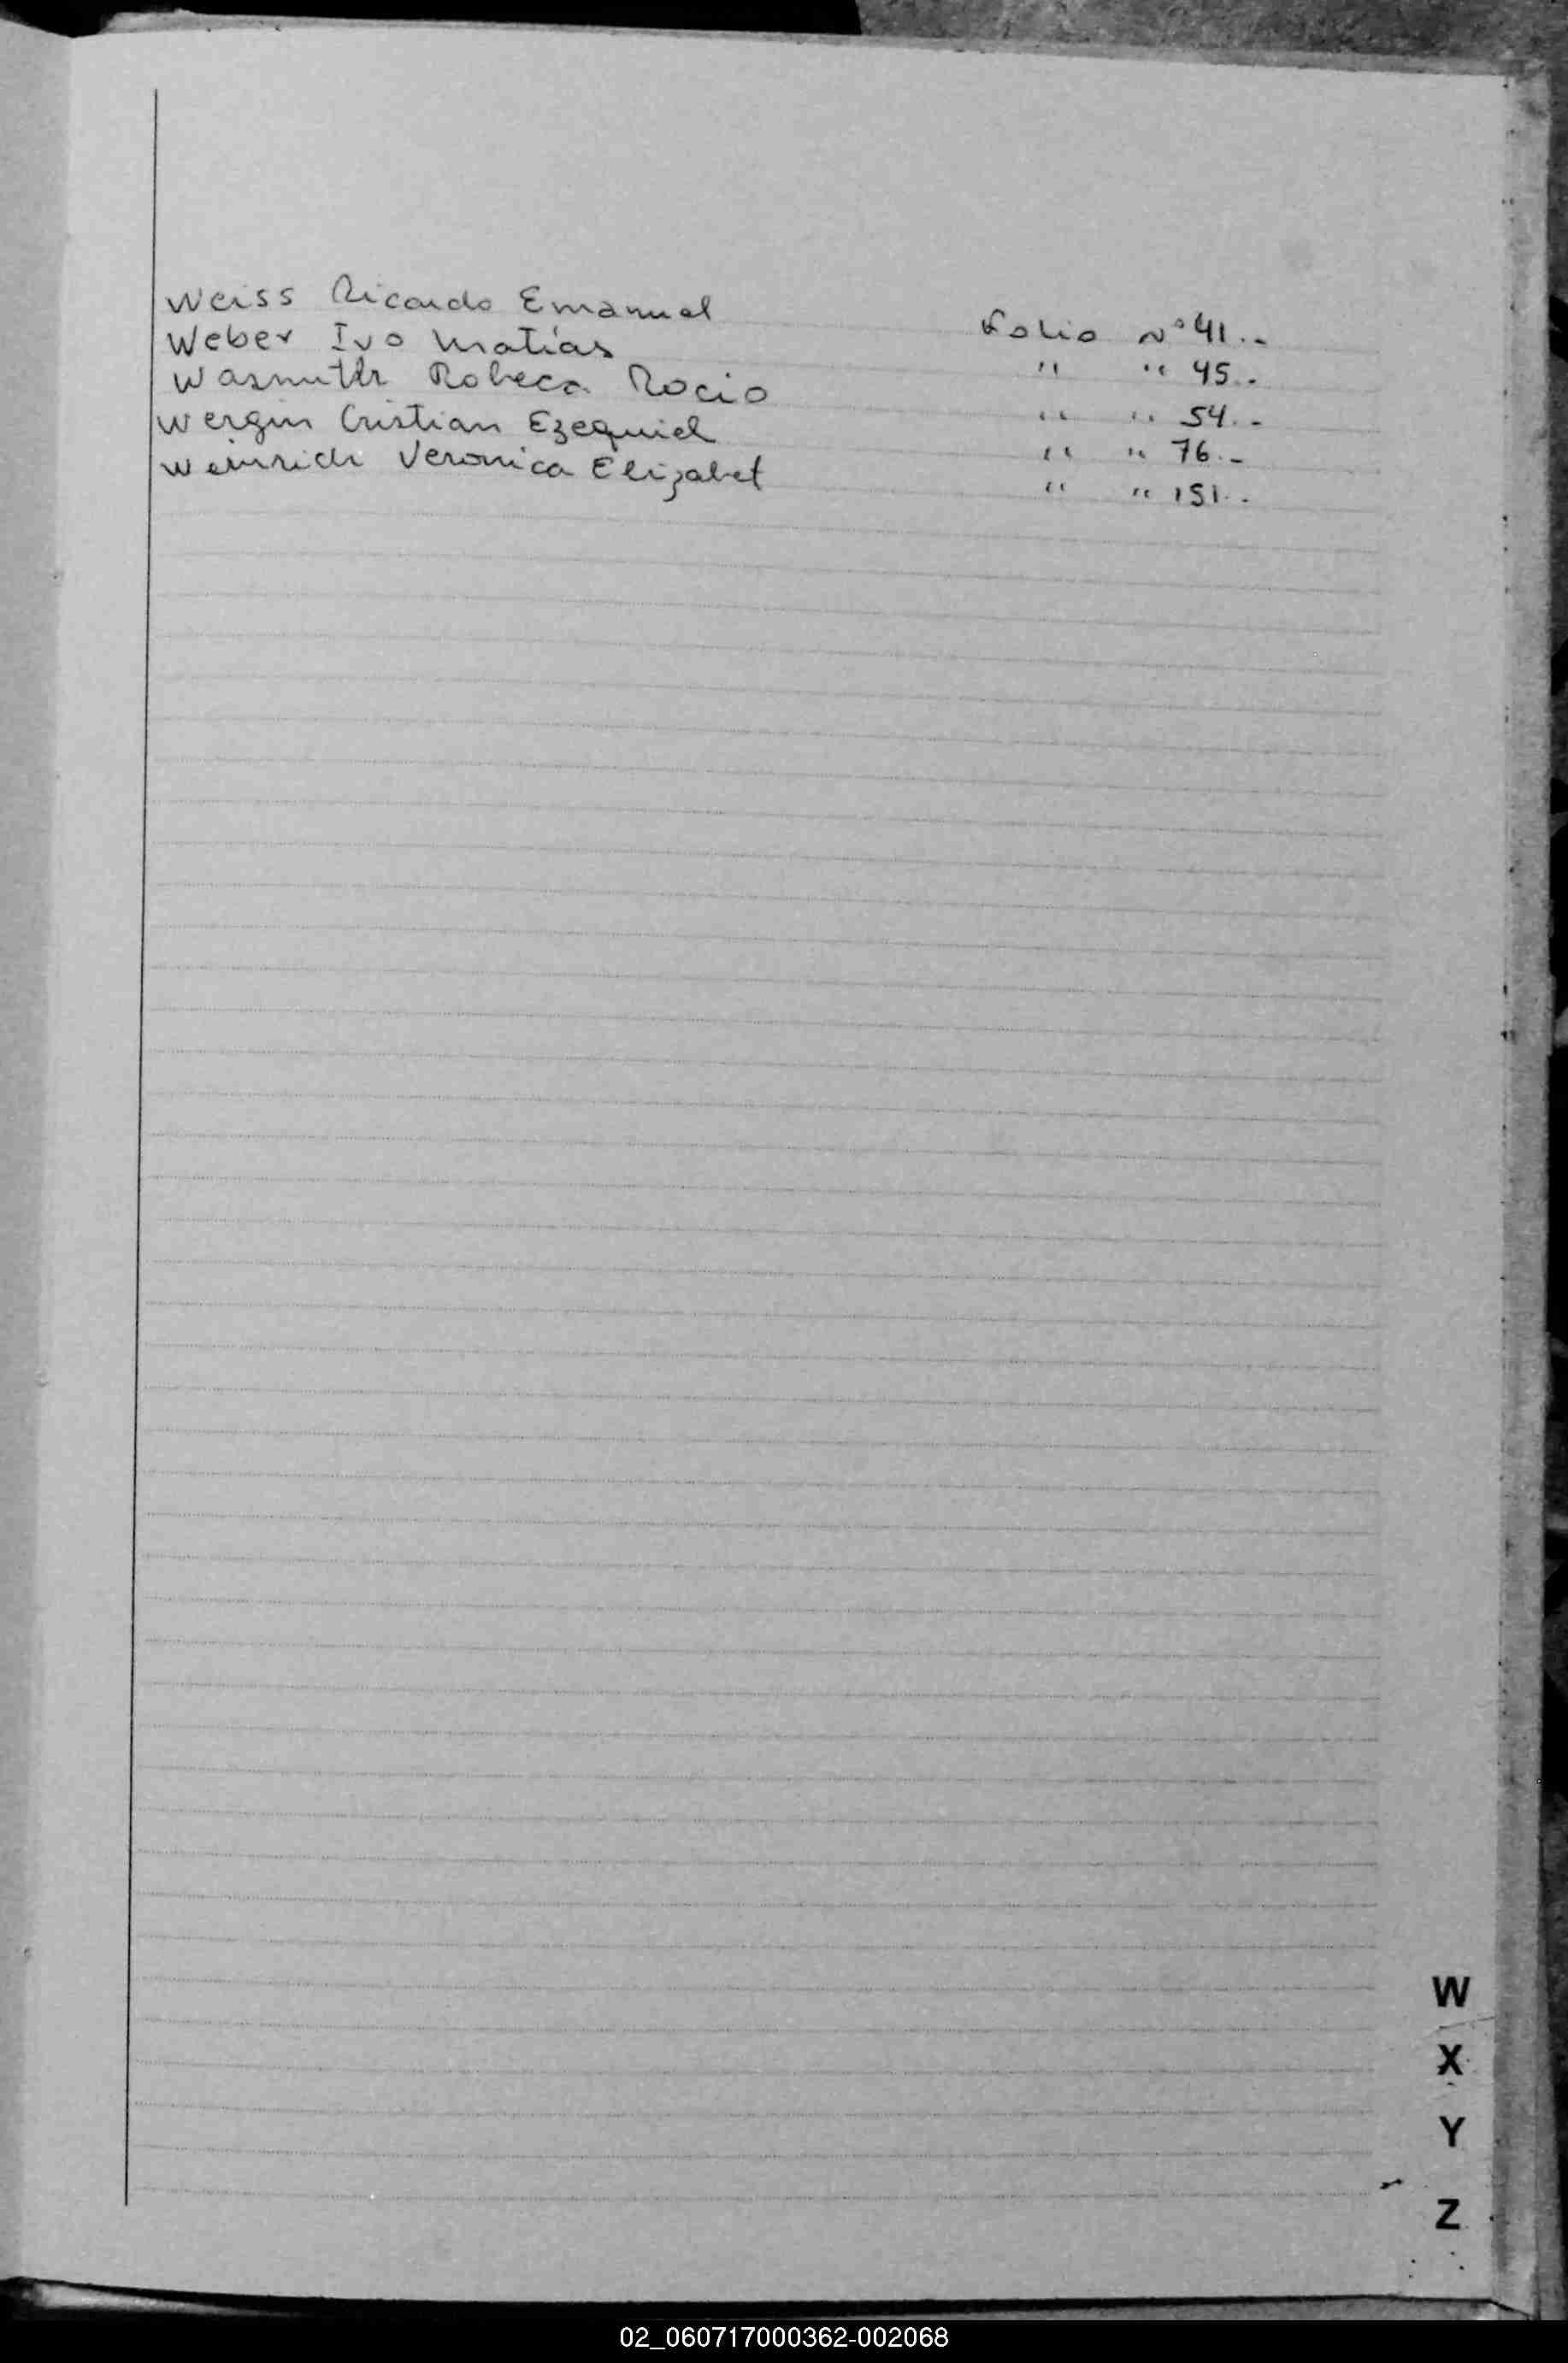 Weiss Ricardo Emanuel Folio Nº 41.-
Weber Ivo Matías " " 45.-
Wasmuth Robeca Rocio " " 54.-
Wergin Cristian Ezequiel " " 76.-
Weinrich Veronica Elizabet " " 151.-
W
X
Y
Z
02_060717000362-002068